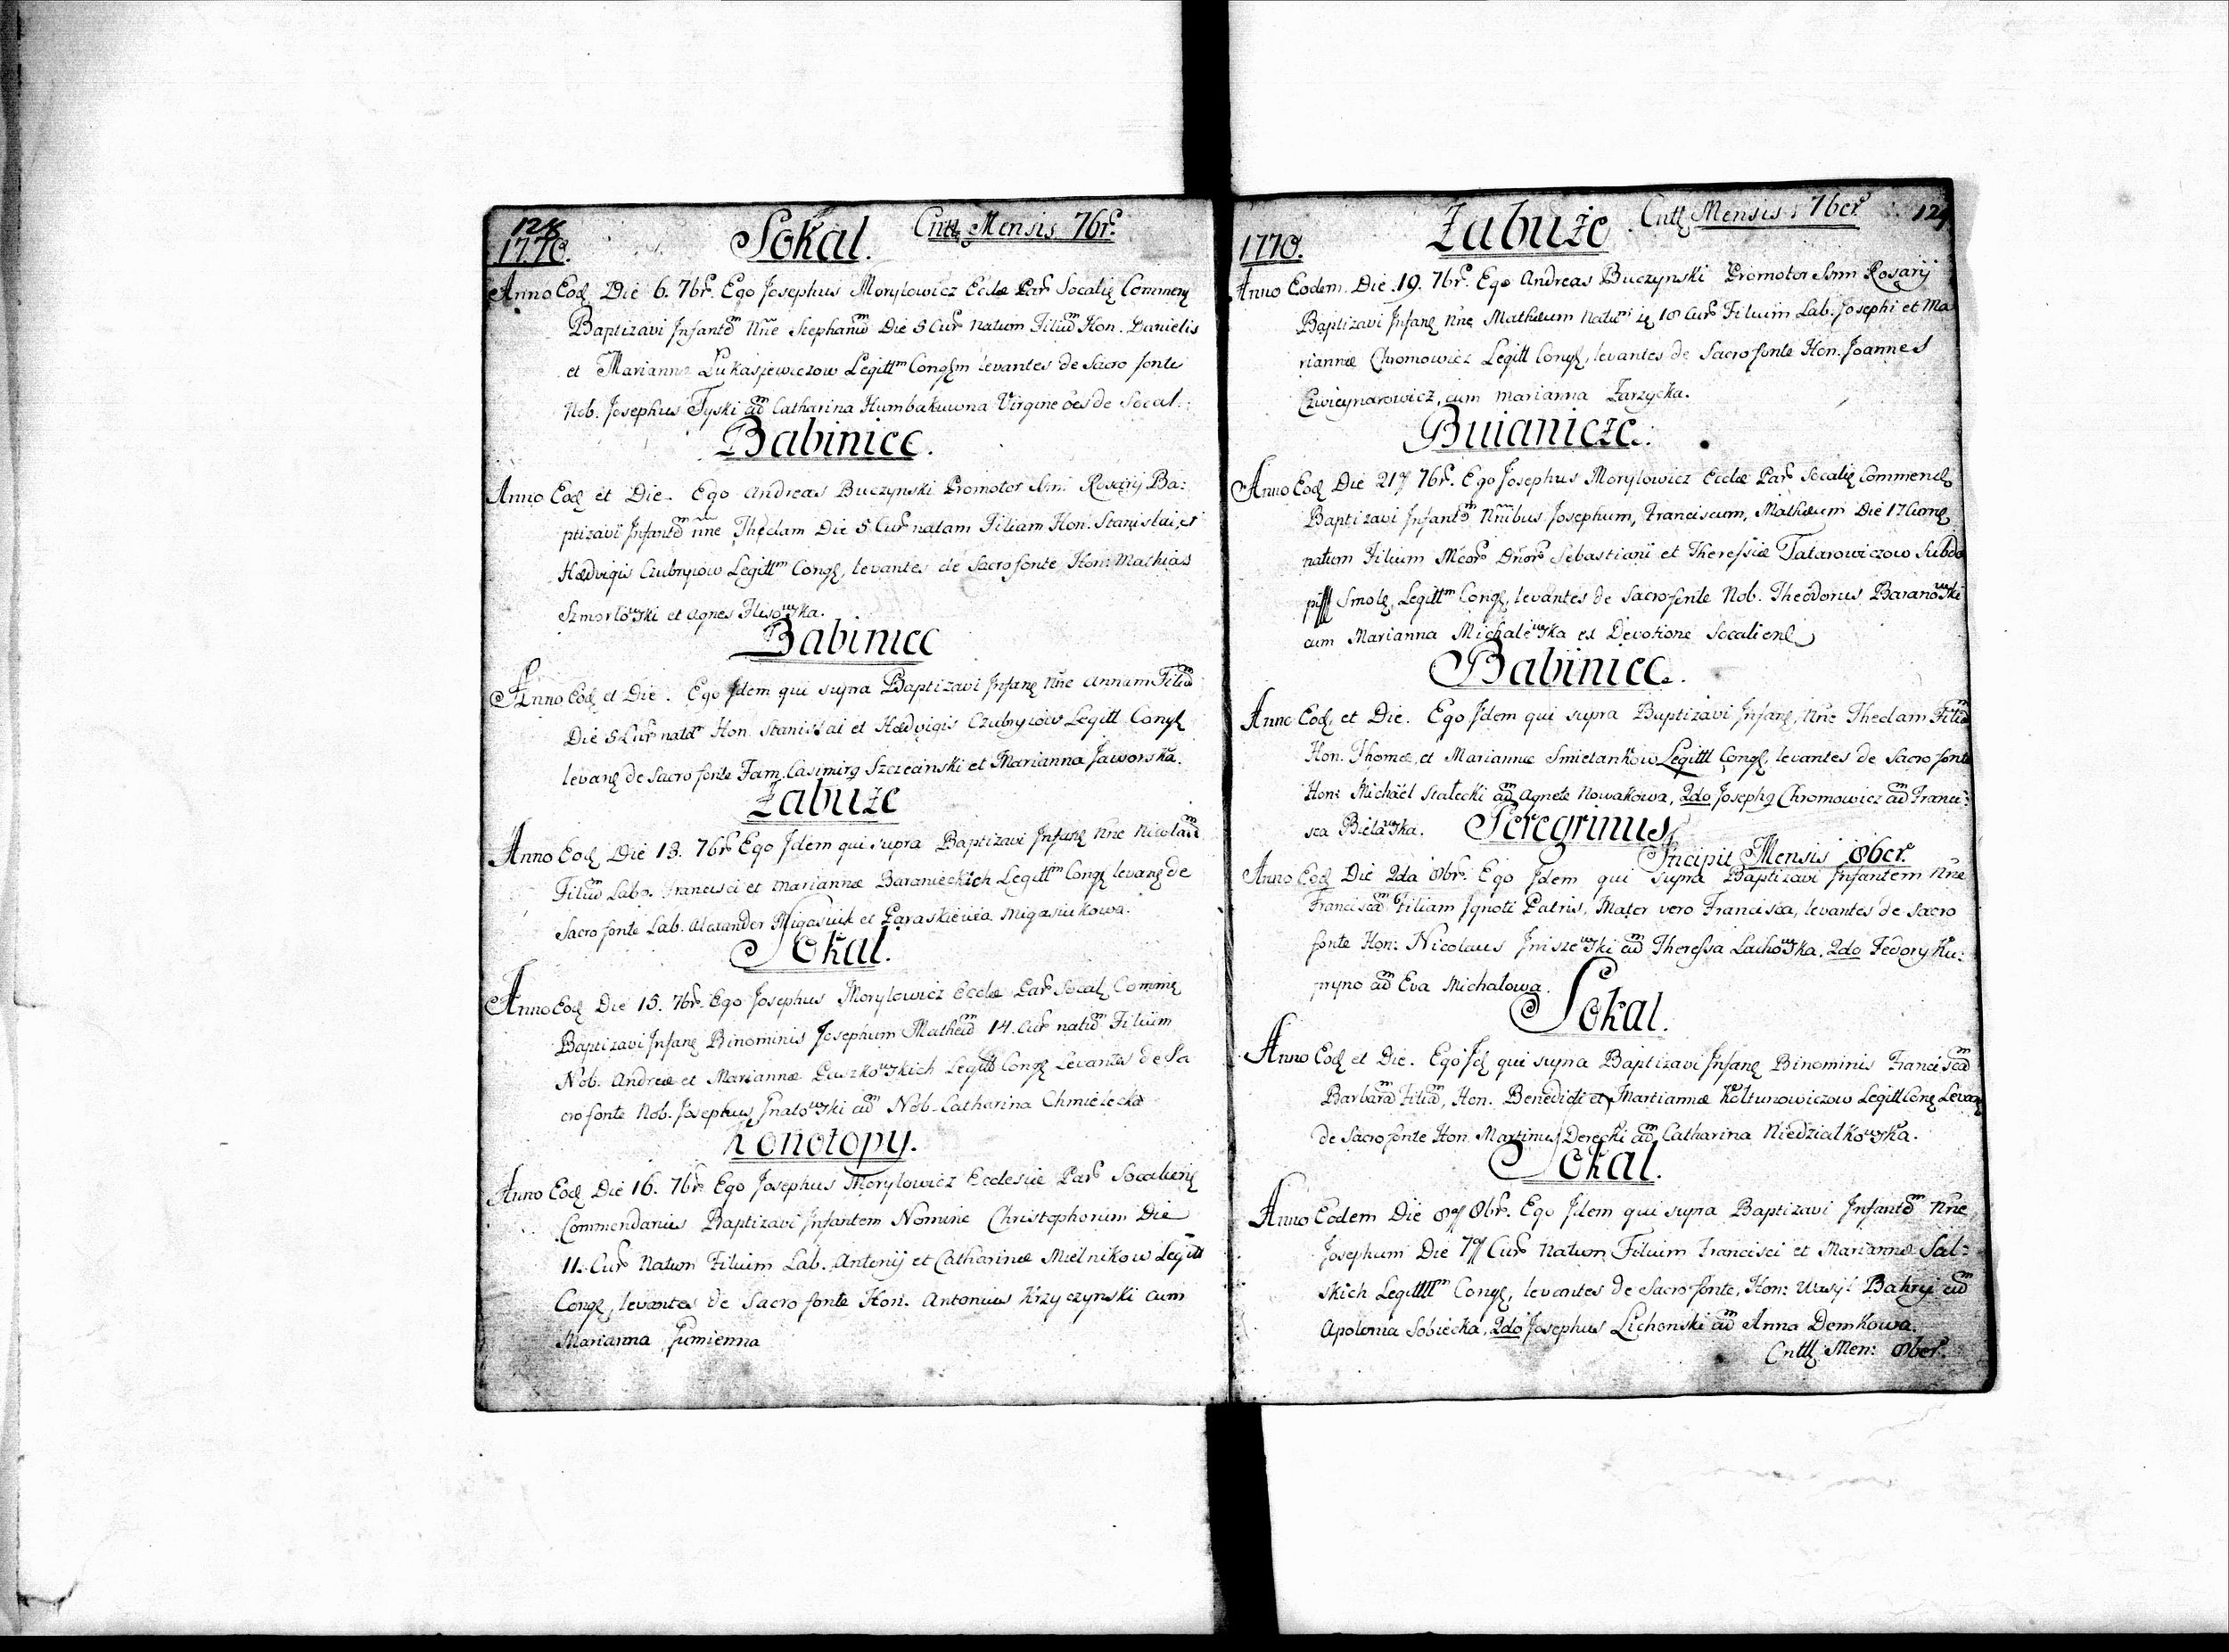 128
1770. Sokal. Cnttę Mensis 7br̃.
Anno Eodę Die 6. 7br̃. Ego Josephus Morylowicz Eclæ Par̃ Socalię Commenę
Baptizavi Infantem̃ Nñe Stephanum̃ Die 5 Cur̃ natum Filium̃ Hon. Danielis
et Marianna Lukasiewiczow Legittm Conగgm levantes de Sacro fonte
Nob. Josephus Tyski cum̃ Catharina Humbakuwna Virgine oẽs de Socal.
Babiniec.
Anno Eodę et Die. Ego Andreas Buczynski Promotor Smi Rosarij Ba:
ptizavi Infantem̃ nñe Theclam Die 5 Cur̃ natam Filiam Hon. Stanislai, et
Hædvigis Czubryiow Legittm Congę, levantes de Sacro fonte Hon: Mathias
Szmorłowski et Agnes Flisowska.
Babiniec
Anno Eodę et Die. Ego Idem qui supra Baptizavi Infanę Nñe Annam Filiam̃
Die 5 Cur̃ natam̃ Hon. Stanislai et Hædvigis Czubryiow Legitt Congę
levanę de Sacro fonte Fam. Casimirꝯ Szczecinski et Marianna Jaworska.
Zabuże
Anno Eodę Die 13. 7br̃ Ego Idem qui supra Baptizavi Infanę Nñe Nicolaum̃
Filium̃ Labo. Francisci et Mariannæ Baranieckich Legittm Congę levanę de
Sacro fonte Lab. Alexander Migasiuk et Paraskiewia Migasiukowa.
Sokal.
Anno Eodę Die 15. 7br̃. Ego Josephus Morylowicz Eccłæ Par̃ Socalę Commę
Baptizavi Infanę Binominis Josephum Matheum̃ 14. Cur̃ natum̃ Filium
Nob. Andreæ et Mariannæ Puszkowskich Legitt Congę Levantes de Sa
cro fonte Nob. Josephus Jnatowski cum̃ Nob. Catharina Chmielecka
Konotopy.
Anno Eodę Die 16. 7br̃. Ego Josephus Morylowicz Ecclesiæ Par̃ Socalienę
Commendarius Baptizavi Infantem Nomine Christophorum Die
11. Cur̃ Natum Filium Lab. Antonij et Catharinæ Mielnikow Legitt
Congę, levantes de Sacro fonte Hon. Antonius Krzyczynski cum
Marianna Gumienna
1770. Zabuże Cnttę Mensis 7ber̃ 129
Anno Eodem Die 19. 7br̃. Ego Andreas Buczynski Promotor Smi Rosarij
Baptizavi Infanę Nñe Mathæum Natum 18 Cur̃ Filium Lab. Josephi et Ma
riannæ Chromowicz Legitt Congę, levantes de Sacro fonte Hon. Joannes
Cwieynarowicz, cum Marianna Zarzycka.
Buianicze.
Anno Eodę Die 21 7br̃. Ego Josephus Morylowicz Eccłæ Par̃ Socalię Commendę
Baptizavi Infantem̃ Nñibus Josephum, Franciscum, Mathæum Die 17 Currę
natum Filium Mcor̃ Dñor̃ Sebastiani et Theressiæ Tatarowiczow Subda
Smolę, Legittm Congę, levantes de Sacro fonte Nob. Theodorus Baranowski
cum Marianna Michalewska ex Devotione Socalienę
Babiniec.
Anno Eodę, et Die. Ego Idem qui supra Baptizavi Infanę, Nñe Theclam Filiam̃
Hon. Thomæ, et Mariannæ Smietankow Legittl Congę, levantes de Sacro fonte
Hon: Michäel Stalecki cum̃ Agnete Nowakowa, 2do Josephꝯ Chromowicz cum̃ Franci:
sca Bielawska. Peregrinus
Incipit Mensis 8ber̃.
Anno Eodę Die 2da 8br̃. Ego Idem qui supra Baptizavi Infantem Nñe
Franciscam̃ Filiam Ignoti Patris, Mater vero Francisca, levantes de Sacro
fonte Hon: Nicolaus Jniszewski cum̃ Theressa Lachowska, 2do Fedory Ku:
pryno cum̃ Eva Michałowa.
Sokal.
Anno Eodę et Die. Ego Idę qui supra Baptizavi Infanę Binominis Franciscam̃
Barbaram̃ Filiam̃, Hon. Benedicti et Mariannæ Kołtunowiczow Legitt Congę Levanę
de Sacro fonte Hon. Martinus Derecki cum̃ Catharina Niedziałkowska.
Sokal.
Anno Eodem Die 8 8br̃. Ego Idem qui supra Baptizavi Infantem̃ Nñe
Josephum Die 7 Cur̃ Natum Filium Francisci et Mariannæ Sal:
skich Legitttm Congę, levantes de Sacro fonte, Hon: Wasyl Bahryj cum̃
Apolonia Sobiecka, 2do Josephus Lichonski cum̃ Anna Demkowa.
Cnttę Men: 8ber̃.